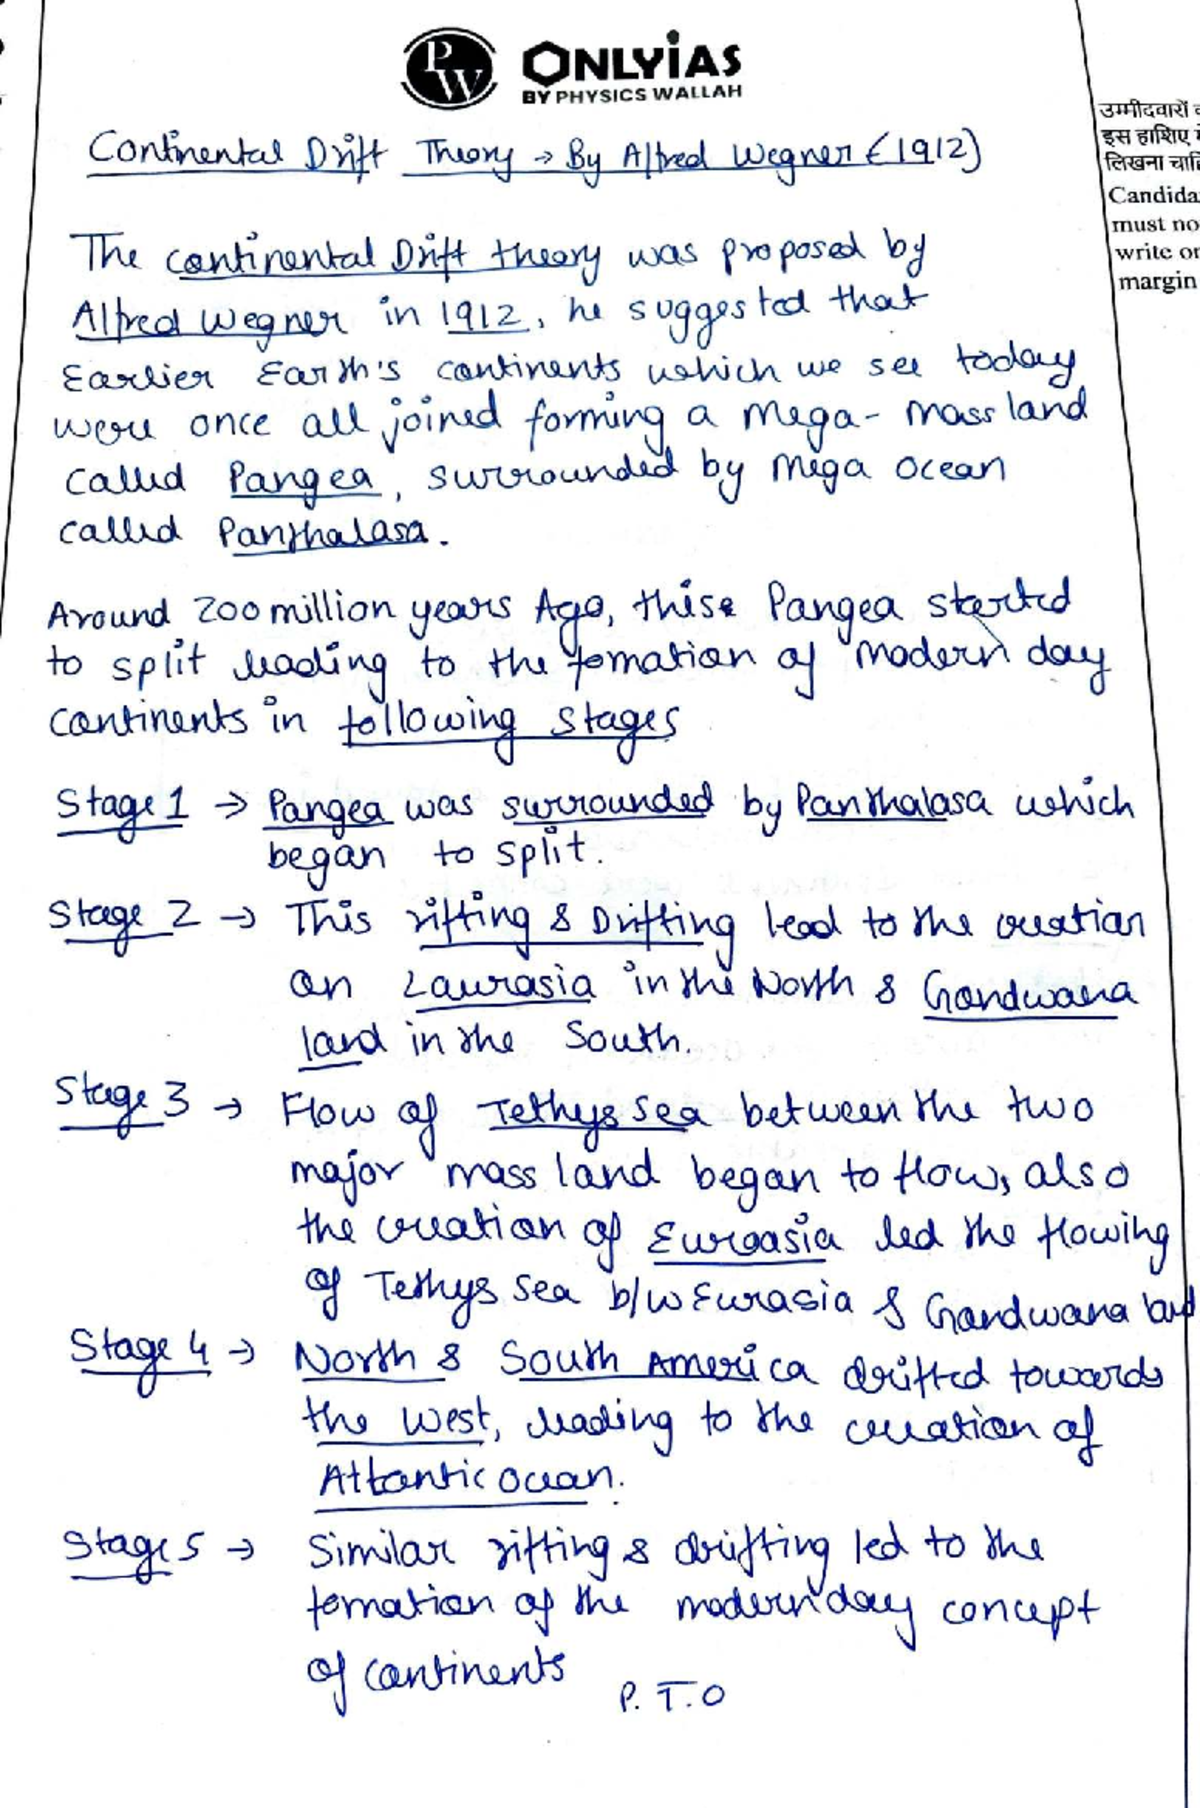 PW ONLYiAS
BY PHYSICS WALLAH
उम्मीदवारों
इस हाशिए
लिखना
Candida
must no
write or
margin
Continental Drift Theory → By Alfred Wegner (1912)
The continental Drift theory was proposed by
Alfred Wegner in 1912, he suggested that
Earlier Earth's continents which we see today
were once all joined forming a Mega- mass land
called Pangea, surrounded by Mega Ocean
called Panthalasa.
Around 200 million years Ago, thise Pangea started
to split leading to the fomation of Modern day
continents in following stages
Stage 1 → Pangea was surrounded by Panthalasa which
began to split.
Stage 2 → This rifting & Drifting lead to the creation
on Laurasia in the North & Gondwana
land in the South.
Stage 3 → Flow of Tethys Sea between the two
major mass land began to flow, also
the creation of Euroasia led the flowing
of Tethys Sea b/w Eurasia & Gondwana land
Stage 4 → North & South America drifted towards
the West, leading to the creation of
Atlantic ocean.
Stage 5 → Similar rifting & drifting led to the
fomation of the modern day concept
of continents
P.T.O